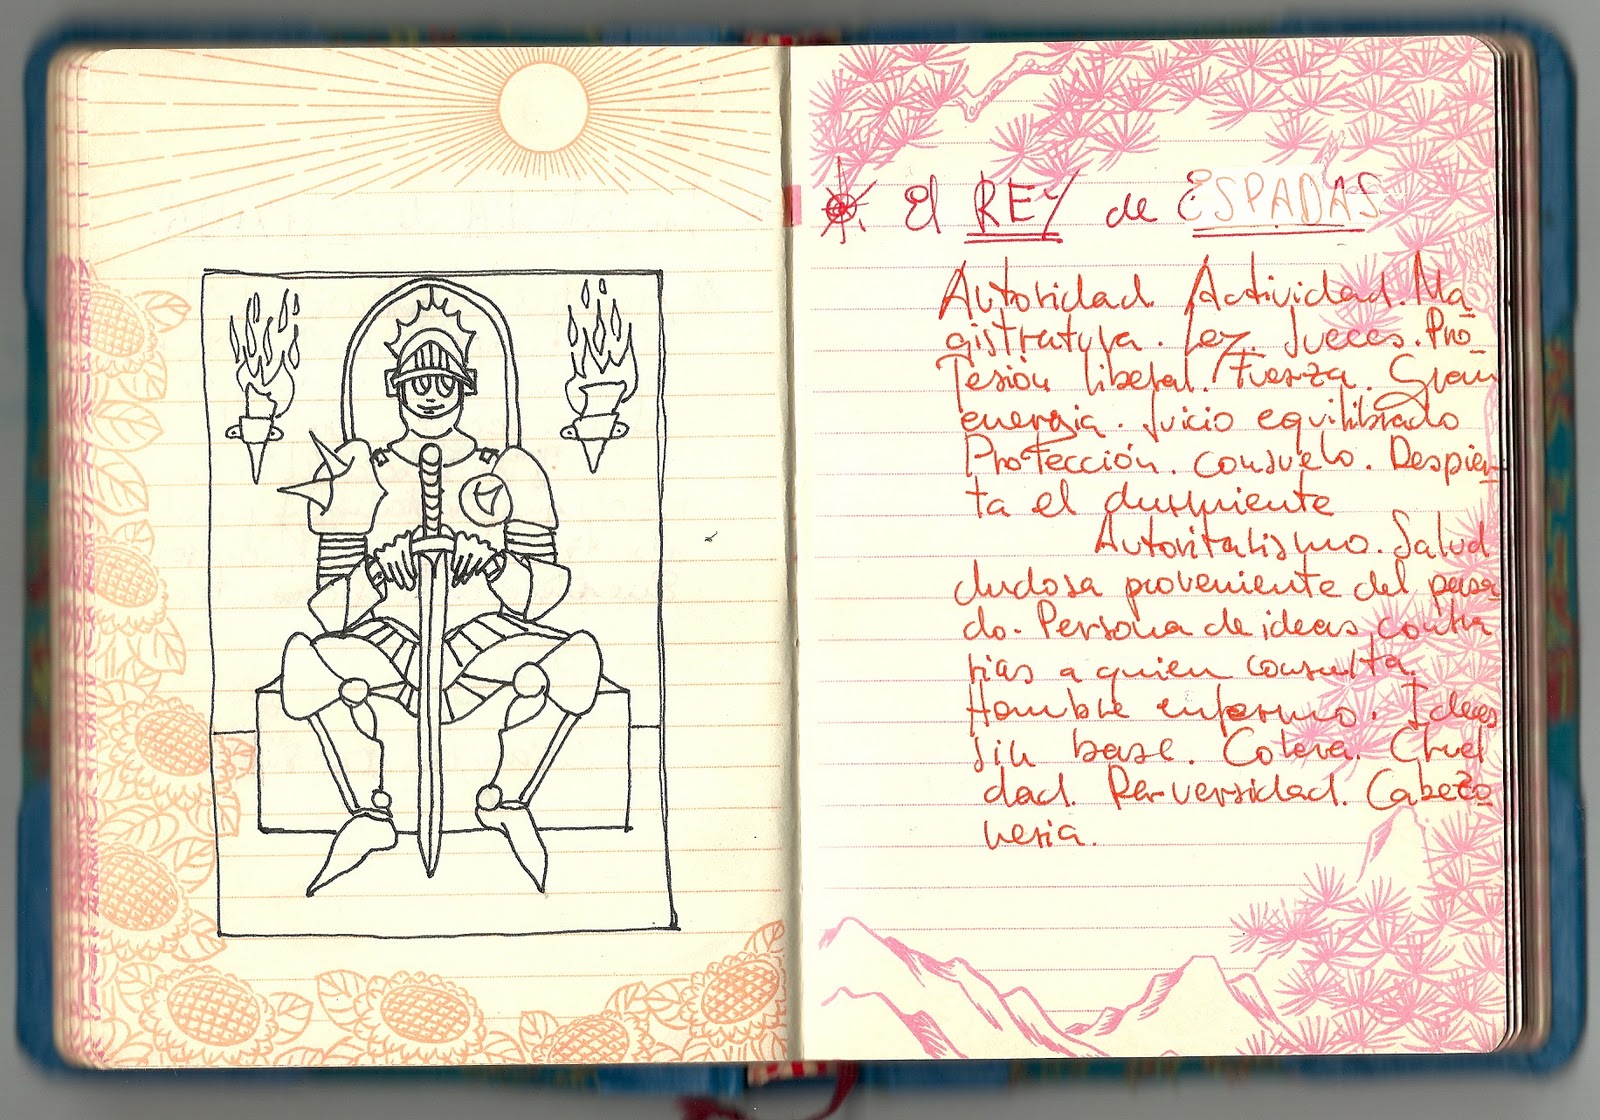 El REY de ESPADAS
Autoridad. Actividad. Ma-
gistratura. Ley. Jueces. Pro-
fesión liberal. Fuerza. Gran
energia. Juicio equilibrado
Protección. Consuelo. Despier-
ta el durmiente
Autoritalismo. Salud
dudosa proveniente del pasa
do. Persona de ideas contra
rias a quien consulta.
Hombre enfermo. Ideas
sin base. Colera. Cruel
dad. Perversidad. Cabezo
neria.